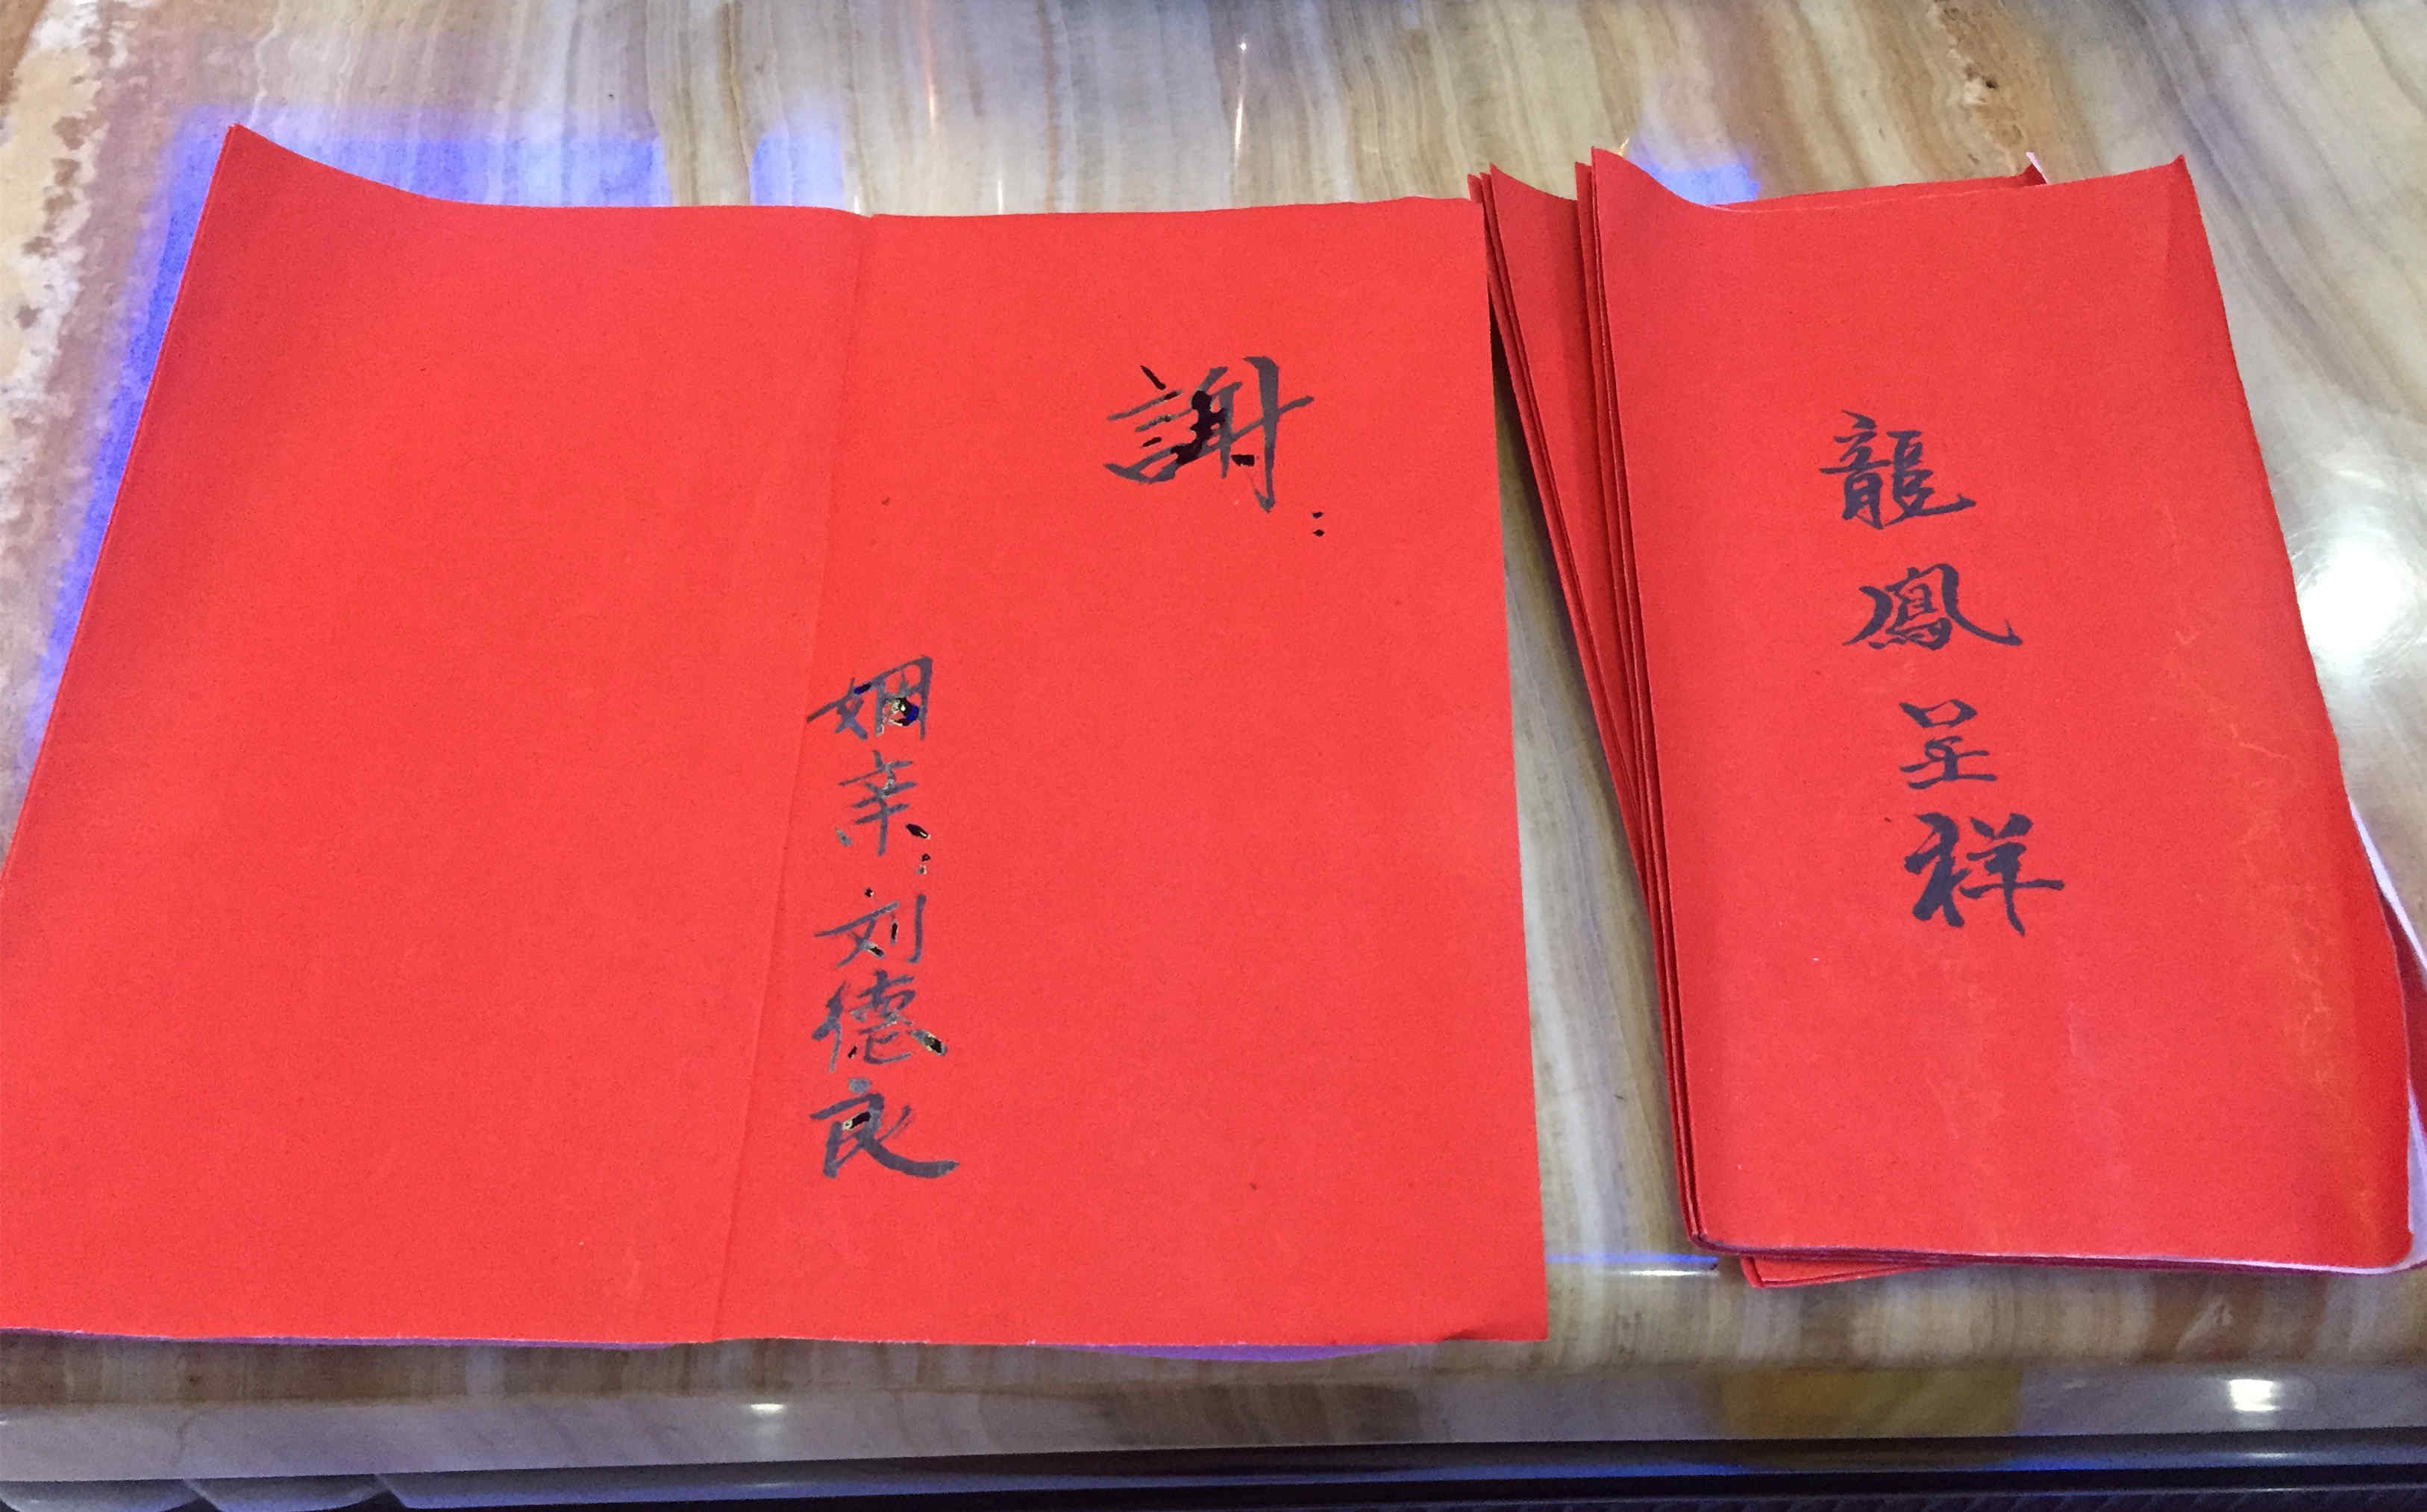 龍鳳呈祥
謝:
姻亲:刘德良